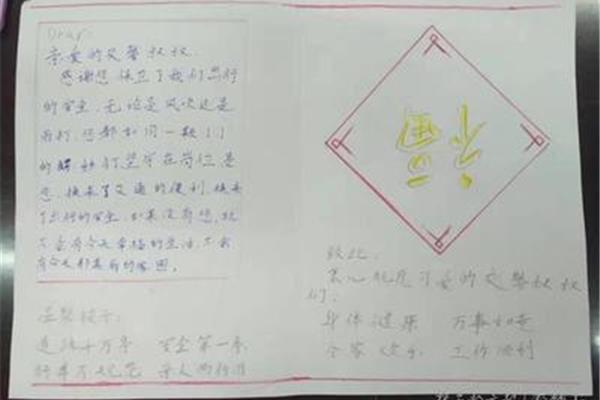 Dear:
亲爱的交警叔叔.
感谢您保卫了我们出行
的安全,无论是风吹还是
雨打,您都如同一颗小小
的螺丝钉坚守在岗位.是
您,换来了交通的便利,换来
了出行的安全.如果没有您,就
不会有今天幸福的生活,不会
有今天那美丽的家园。
温馨提示:
道路千万条 安全第一条
行车不规范 亲人两行泪
福
致此:
衷心祝愿可爱的交警叔叔
们:
身体健康 万事如意
合家欢乐 工作顺利